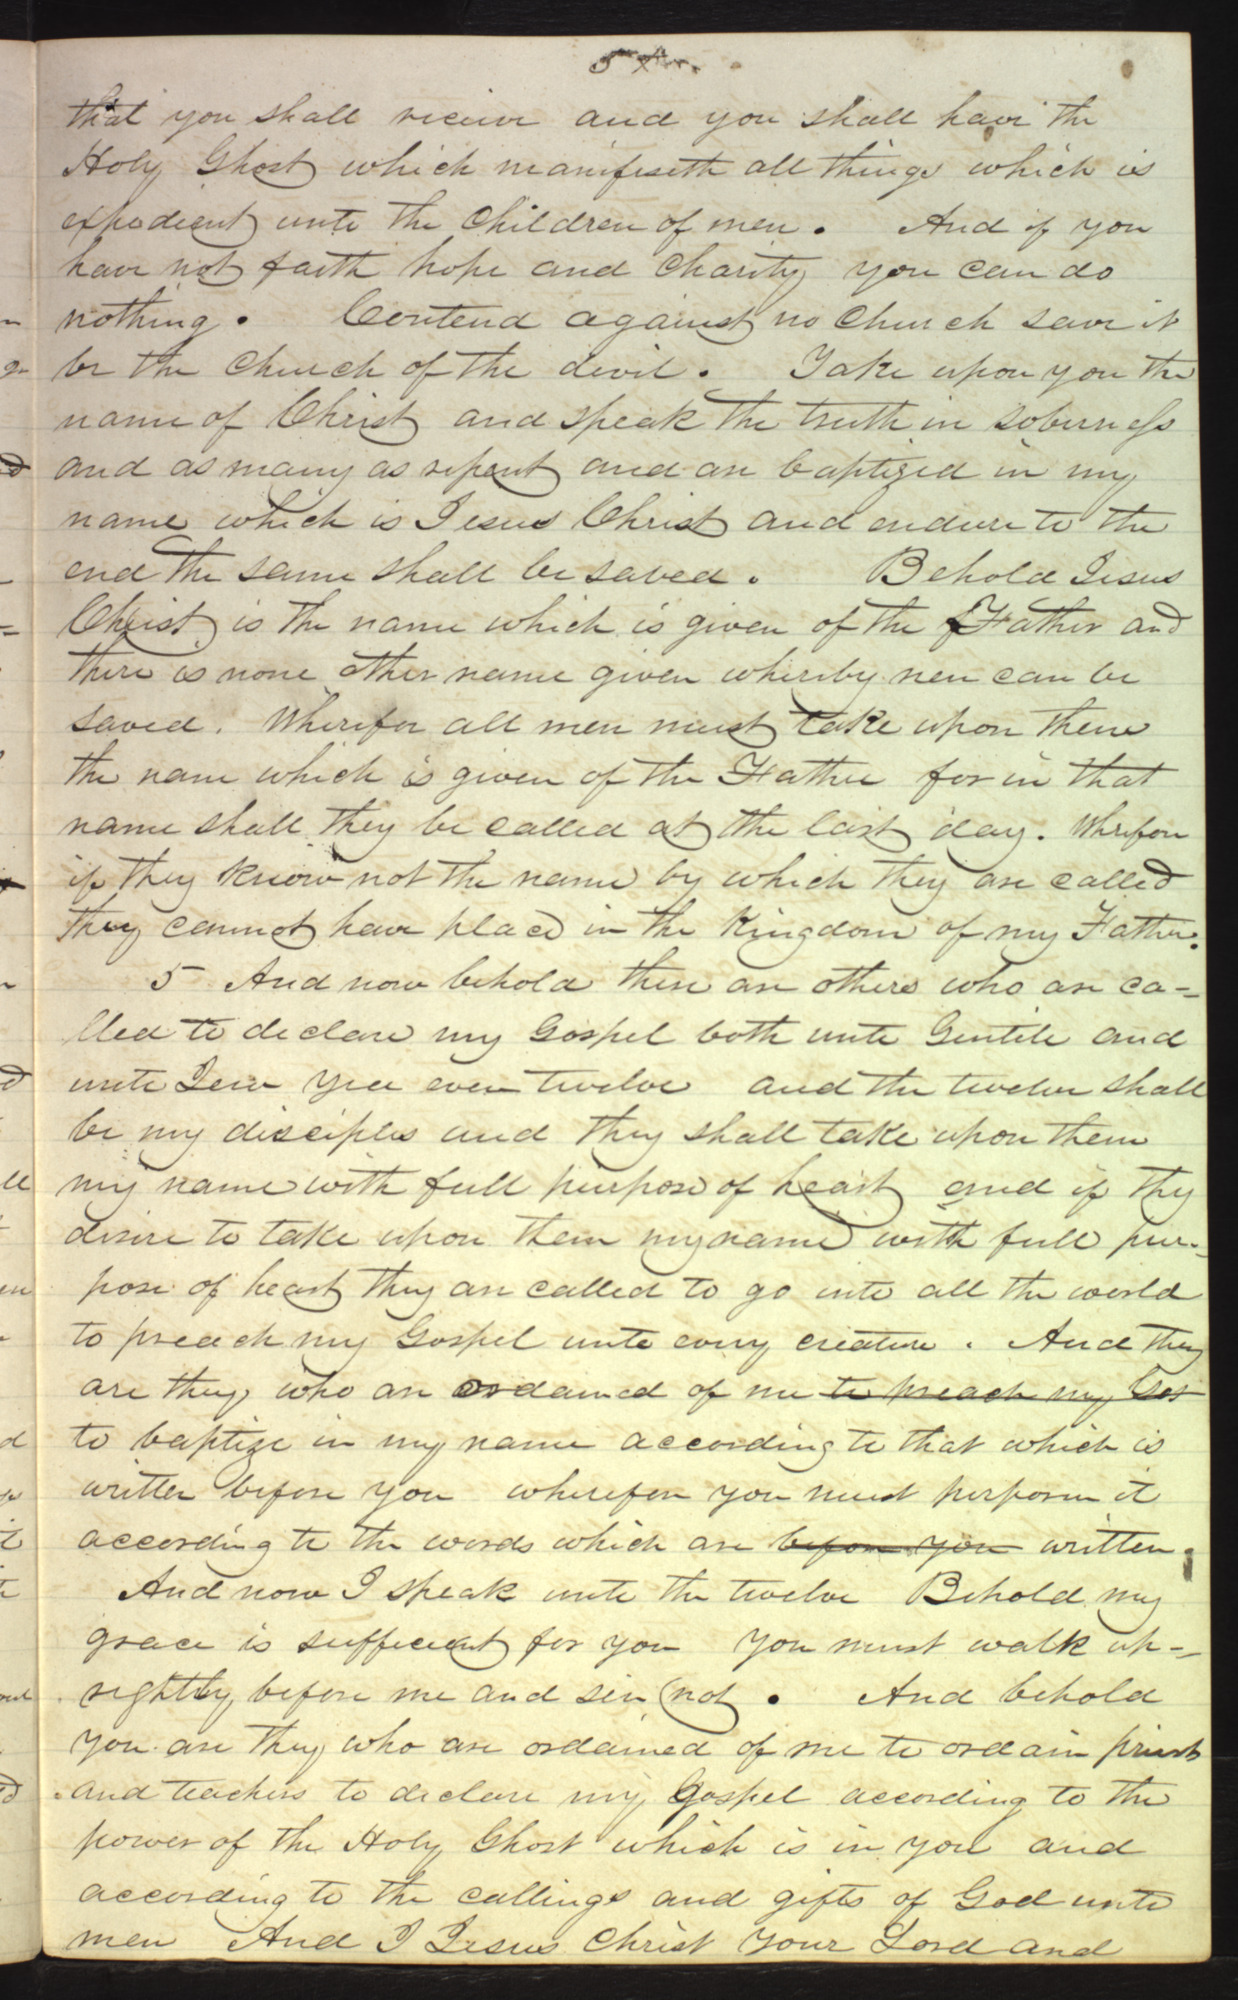 that you shall receive and you shall have the
Holy Ghost which manifesteth all things which is
expedient unto the Children of men. And if you
have not faith hope and Charity you can do
nothing. Contend against no Church save it
be the Church of the devil. Take upon you the
name of Christ and speak the truth in soberness
and as many as repent and are baptized in my
name which is Jesus Christ and endure to the
end the same shall be saved. Behold Jesus
Christ is the name which is given of the Father and
there is none other name given whereby men can be
saved. Wherefore all men must take upon them
the name which is given of the Father for in that
name shall they be called at the last day. Wherefore
if they know not the name by which they are called
they cannot have place in the Kingdom of my Father.
5 And now behold there are others who are ca-
lled to declare my Gospel both unto Gentile and
unto Jew Yea even twelve and the twelve shall
be my disciples and they shall take upon them
my name with full purpose of heart and if they
desire to take upon them my name with full pur-
pose of heart they are called to go into all the world
to preach my Gospel unto every creature. And they
are they who are ordained of me to preach my Gos
to baptize in my name according to that which is
written before you wherefore you must perform it
according to the words which are before you written.
And now I speak unto the twelve Behold my
grace is sufficient for you You must walk up-
rightly before me and sin not. And behold
you are they who are ordained of me to ordain priests
and teachers to declare my Gospel according to the
power of the Holy Ghost which is in you and
according to the callings and gifts of God unto
men And I Jesus Christ your Lord and